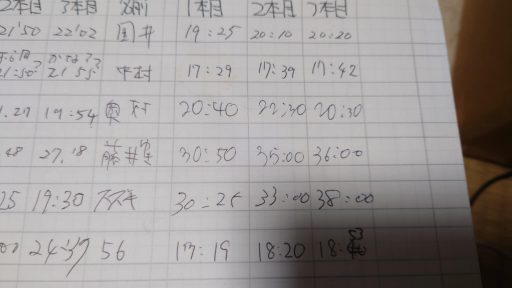 2本目 3本目 名前 1本目 2本目 3本目
21'50 22'02 国井 19:25 20:10 20:20
21:50? 21'55 中村 17:29 17:39 17:42
1.27 19:54 奥村 20:40 22:30 20:30
48 27.18 藤井 30:50 35:00 36:00
25 19:30 30:25 33:00 38:00
24:37 56 17:19 18:20 18:53